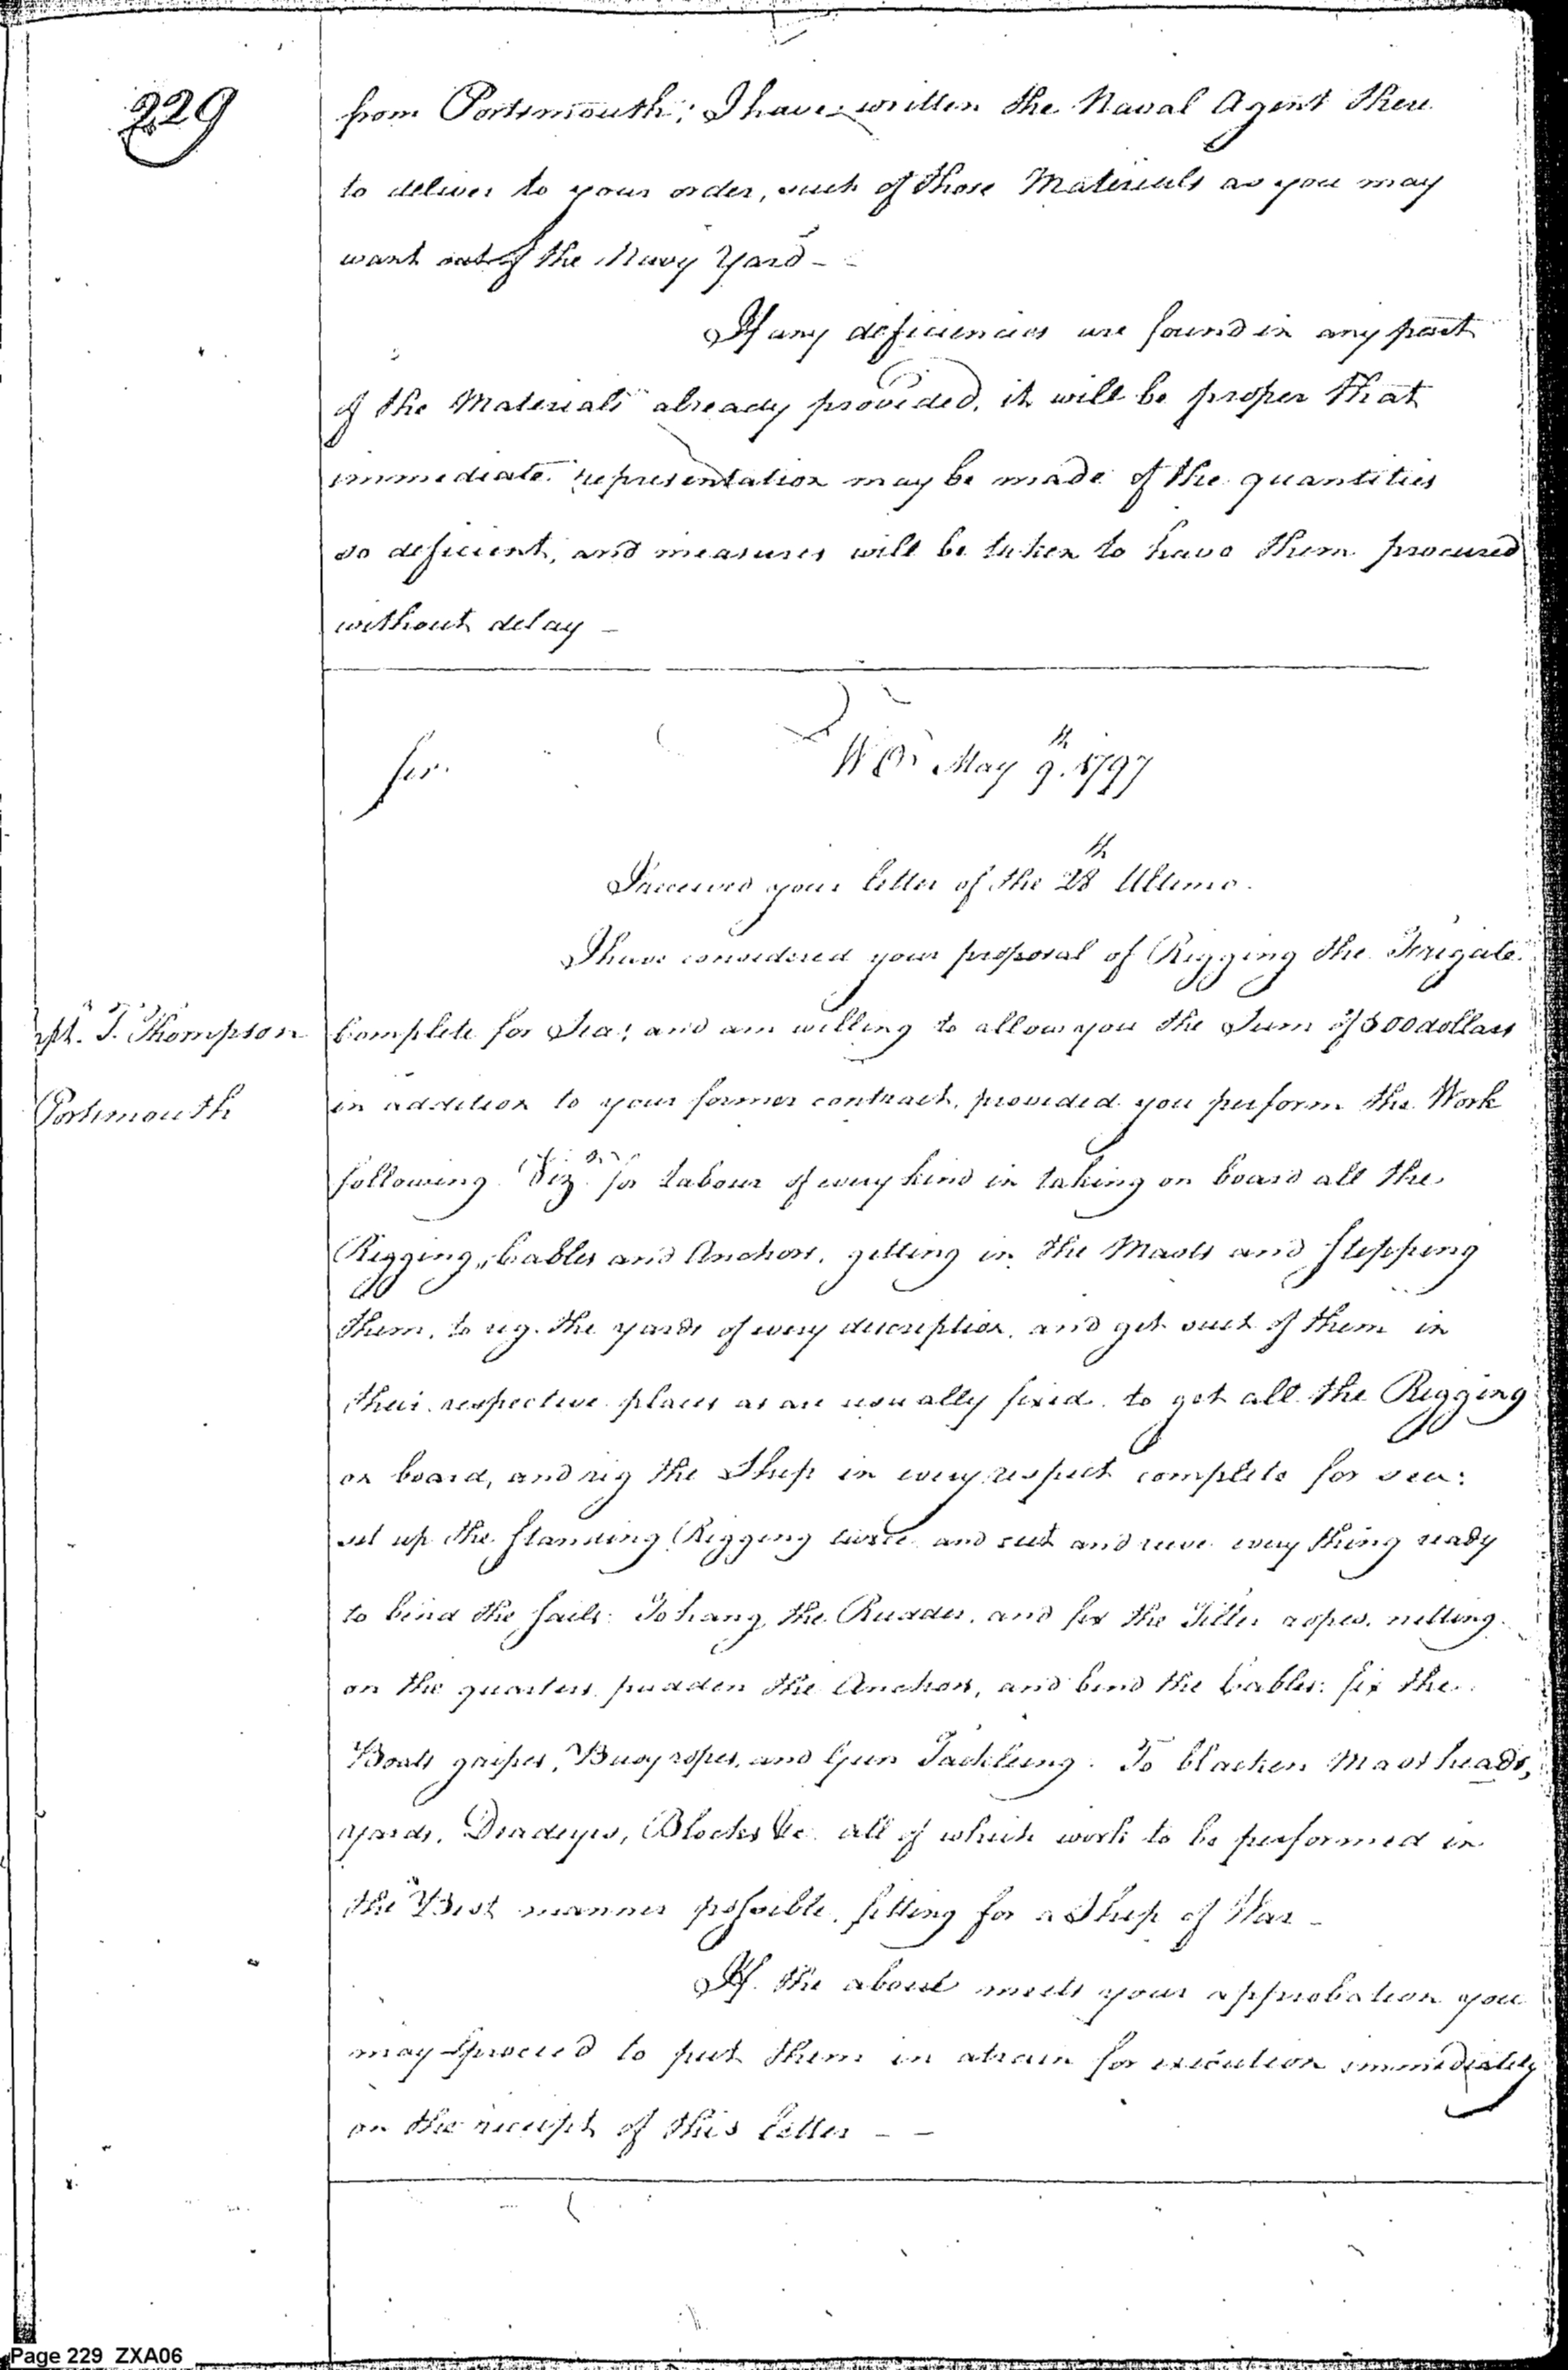 229
from Portsmouth; I have written the Naval Agent there
to deliver to your order, such of those Materials as you may
want out of the Navy Yard - -
If any deficiencies are found in any part
of the Materials already provided, it will be proper that
immediate representation may be made of the quantities
so deficient, and measures will be taken to have them procured
without delay -
Sir.
W O May 9th. 1797
I received your letter of the 28th Ultimo.
I have considered your proposal of Rigging the Frigate
T. Thompson
Portsmouth
Complete for Sea; and am willing to allow you the Sum of 500 dollars
in addition to your former contract, provided you perform the Work
following Viz. for Labour of every kind in taking on board all the
Rigging, Cables and Anchors, getting in the Masts and Stepping
them, to rig the yards of every description, and get such of them in
their respective places as are usually fixed. to get all the Rigging
on board, and rig the Ship in every respect complete for sea:
set up the Standing Rigging twice and cut and reeve every thing ready
to bend the Sails: To hang the Rudder, and fix the Tiller ropes, netting
on the quarters, pudden the Anchors, and bend the Cables: fix the
Boats gripes, Buoy ropes, and Gun Tackling. To blacken Mast heads,
yards, Deadeyes, Blocks &c. all of which work to be performed in
the Best manner possible, fitting for a Ship of War -
If the above meets your approbation you
may proceed to put them in a train for execution immediately
on the receipt of this letter - -
Page 229 ZXA06